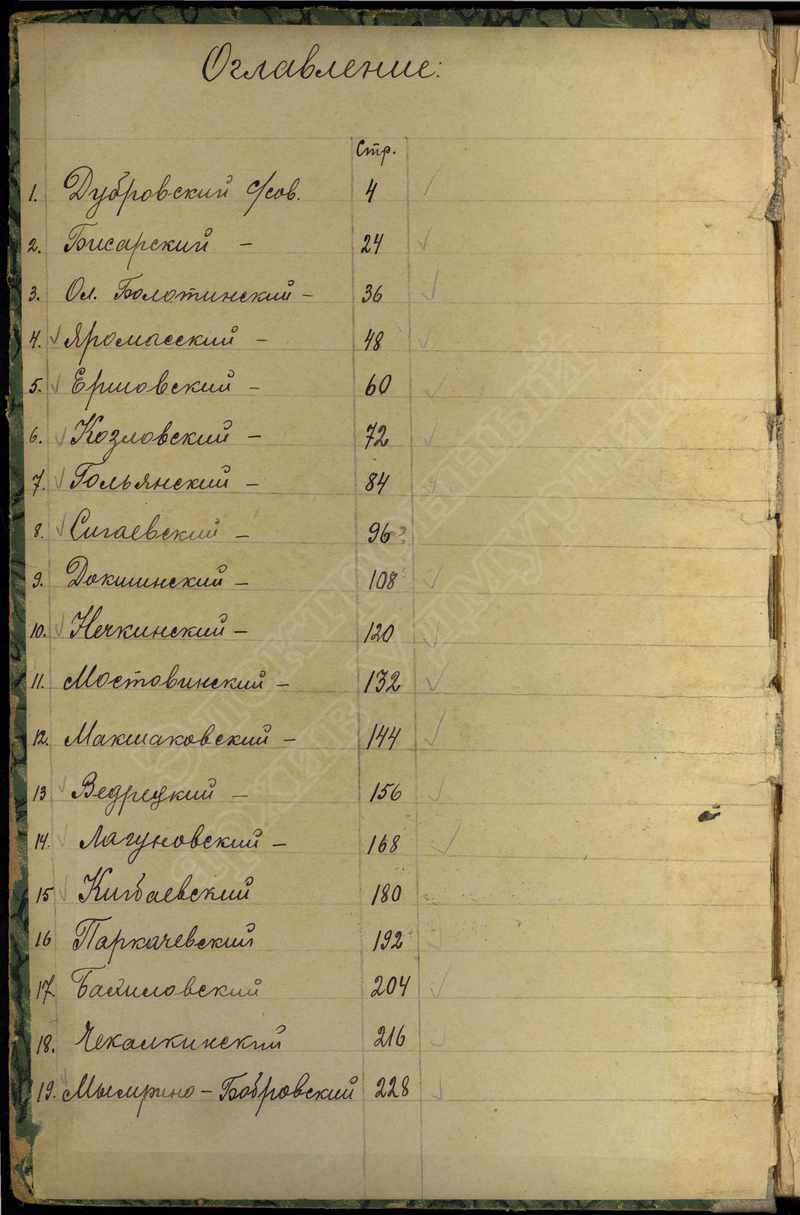 Оглавление:
Стр.
1. Дубровский с/сов. 4
2. Бисарский - 24
3. Ол. Болотинский - 36
4. Яромасский - 48
5. Ершовский - 60
6. Козловский - 72
7. Гольянский - 84
8. Сигаевский - 96
9. Докшинский - 108
10. Нечкинский - 120
11. Мостовинский - 132
12. Макшаковский - 144
13 Ведрецкий - 156
14. Лагуновский - 168
15 Кигбаевский 180
16 Паркачевский 192
17. 204
18. Чекалкинский 216
19. Мымрино - Бобровский 228